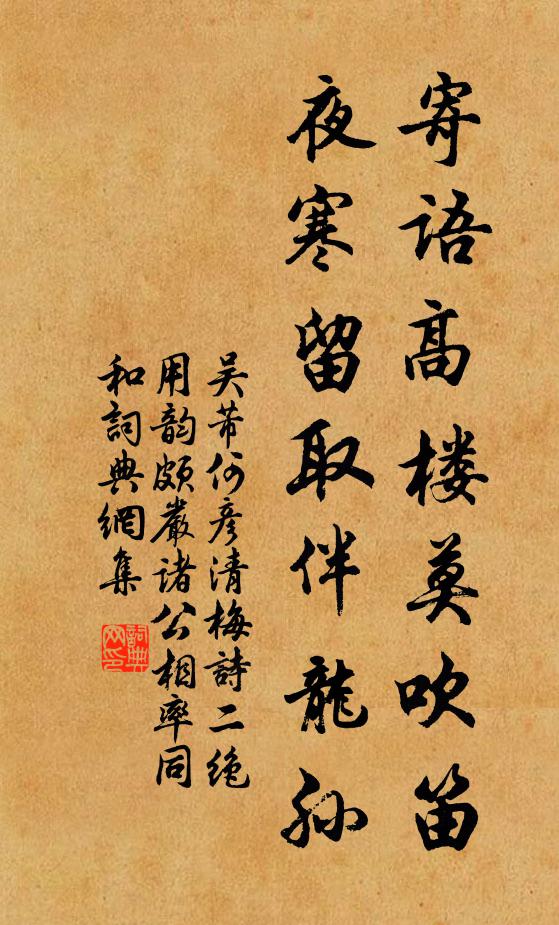 寄语高楼莫吹笛
夜寒留取伴龙孙
吴芾何彦清梅詩二绝
用韵颇嚴诸公相率同
和詞典網集
詞典
网印